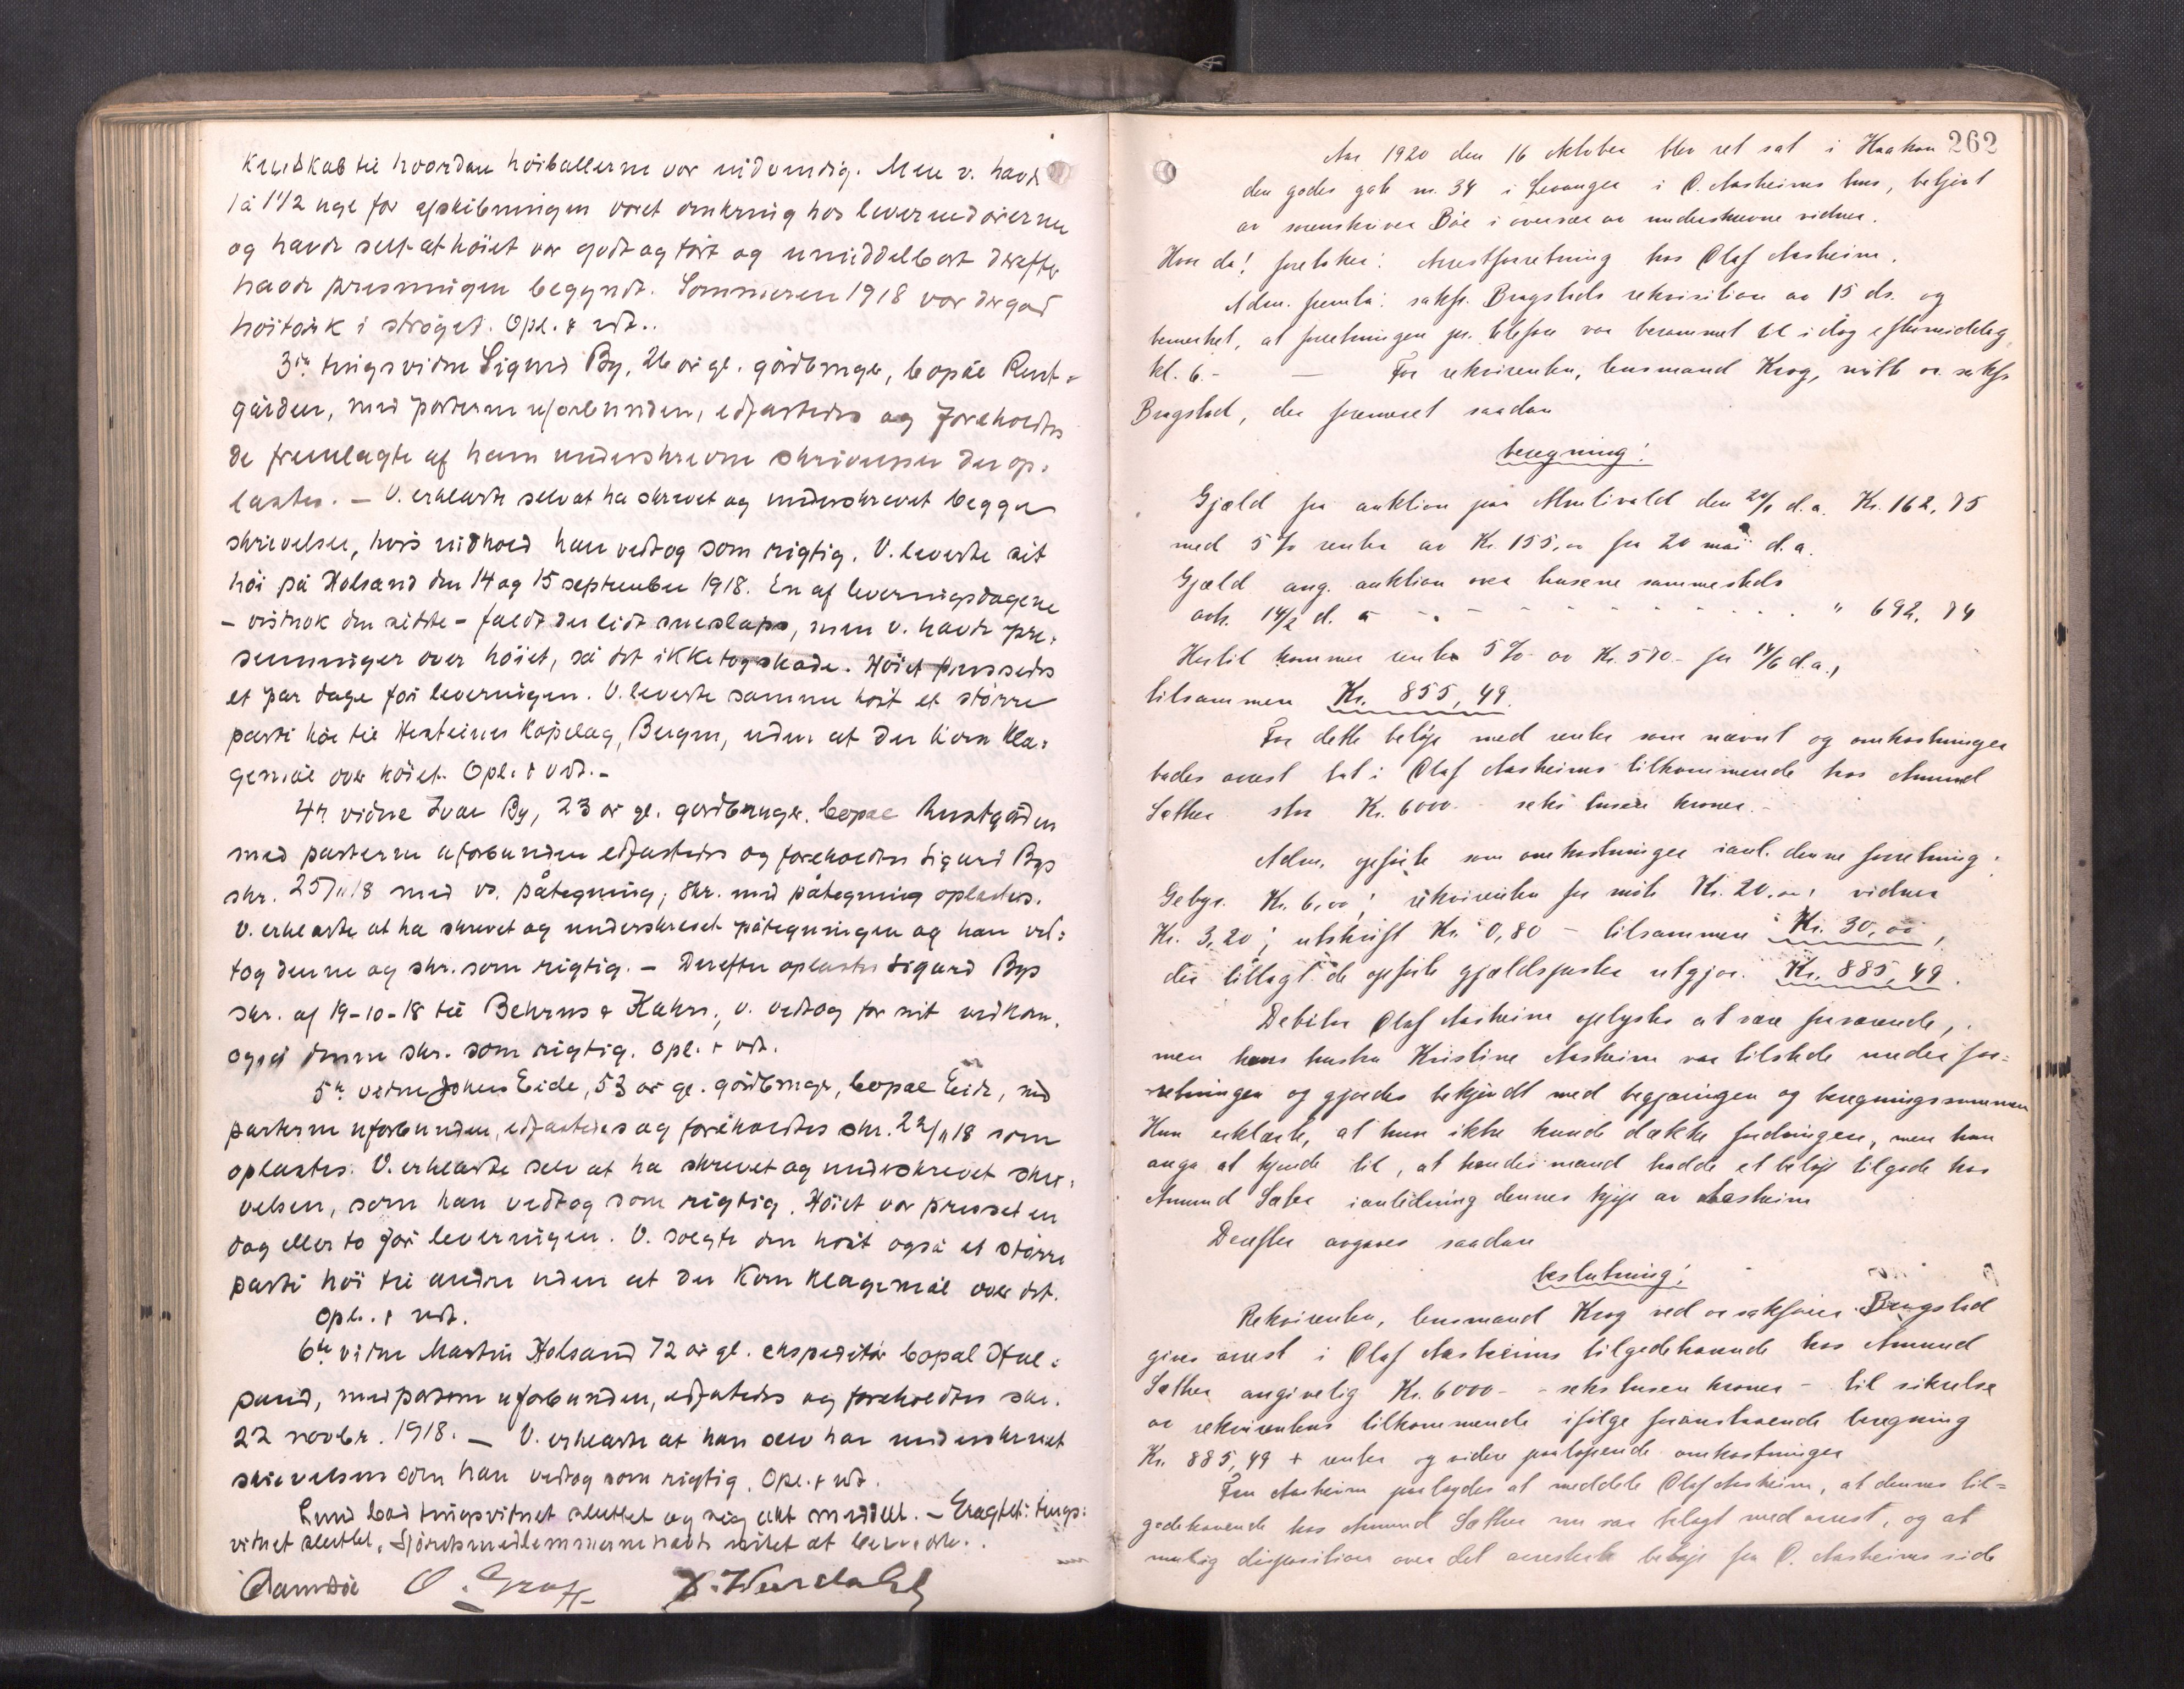 kundskab til hvordan höiballerne var indvendig. Men v. havde
1 á 1 1/2 uge for afskibningen været omkring hos leverandörerne
og havde set at höiet var godt og tört og umiddelbart derefter
havde presningen begyndt. Sommeren 1918 var der god
höitörk i ströget. Opl. & vdt..
3die tingsvidne Sigurd By, 26 år gl. gårdbruger, bopæl Rust-
gården, med parterne uforbunden, edfæstedes og foreholdtes
de fremlagte af ham underskrevne skrivelser der op-
læstes. – V. erklærte selv at ha skrevet og underskrevet begge
skrivelser, hvis indhold han vedtog som rigtig. V. leverte sit
höi på Holsand den 14 og 15 september 1918. En af leveringsdagene
– vistnok den sidste – faldt der lidt sneslaps, men v. havde pre-
senninger over höiet, så det ikke tog skade. Höiet pressedes
et par dage för leveringen. V. leverte samme höst et större
parti höi til Hesteiernes Köpelag, Bergen, uden at der kom kla-
gemål over höiet. Opl. & vdt. –
4de vidne Ivar By, 23 år gl. gårdbruger, bopæl Rustgården
med parterne uforbunden edfæstedes og foreholdtes Sigurd Bys
skr. 25/11 18 med vs. påtegning; skr. med påtegning oplæstes.
V. erklærte at ha skrevet og underskrevet påtegningen og han ved-
tog denne og skr. som rigtig. – Derefter oplæstes Sigurd Bys
skr. af 19-10-18 til Behrens & Kahrs, v. vedtog for sit vedkom.
også denne skr. som rigtig. Opl. & vdt.
5te vidne Johan Eide, 53 år gl. gårdbruger, bopæl Eide, med
parterne uforbunden, edfæstedes og foreholdtes skr. 22/11 18 som
oplæstes. V. erklærte selv at ha skrevet og underskrevet skri-
velsen, som han vedtog som rigtig. Höiet var presset en
dag eller to för leveringen. V. solgte den höst også et större
parti höi til andre uden at der kom klagemål over det.
Opl. & vdt.
6te vidne Martin Holsand 72 år gl. ekspeditör bopæl Hol-
sand, med parterne uforbunden, edfæstedes og foreholdtes skr.
22 novbr. 1918. – V. erklærte at han selv har underskrevet
skrivelsen som han vedtog som rigtig. Opl. & vdt.
Lund bad tingsvidnet sluttet og sig akt meddelt. – Eragtet: Tings-
vidnet sluttet. Sjöretsmedlemmerne havde intet at bemerke.
O. Graff
262
Aar 1920 den 16 oktober blev ret sat i Haakon
den godes gate nr. 34 i Levanger i O. Aasheims hus, betjent
av sorenskriver Bóe i overvær av underskrevne vidner.
Hvor da! foretokes: Arrestforretning hos Olaf Aasheim.
Adm. fremla: sakf. Bragstads rekvisition av 15 ds. og
bemerket, at forretningen pr. telefon var berammet til idag eftermiddag
kl. 6. – – For rekvirenten, lensmand Krog, mötte or. sakf.
Bragstad, der fremla saadan
beregning:
Gjæld fra auktion paa den 20/1 d.a. Kr. 162,75
med 5 % renter av Kr. 155,00 fra 20 mai d.a.
Gjæld ang. auktion over husene sammesteds
avh. 14/2 d. a - - - - - " 692,74
Hertil kommer renter 5 % av Kr. 570 – fra 14/6 d.a.,
tilsammen Kr. 855,49.
For dette belöp med renter som nævnt og omkostninger
bades arrest tat i Olaf Aasheims tilkommende hos Amund
Sæther stor Kr. 6000 – seks tusen kroner. –
Adm. opförte som omkostninger ianl. denne forretning:
Gebyr Kr. 6,00; rekvirenten for möte Kr. 20,00; vidner
Kr. 3,20; utskrift Kr. 0,80 – tilsammen Kr. 30,00,
der tillagt de opförte gjældsposter utgjör Kr. 885,49.
Debitor Olaf Aasheim oplystes at være fraværende,
men hans hustru Kristine Aasheim var tilstede under for-
retningen og gjordes bekjendt med begjæringen og beregningssummen
Hun erklærte, at hun ikke kunde dække fordringen, men hun
anga at kjende til, at hendes mand hadde et belöp tilgode hos
Amund Sæter ianledning dennes kjöp av Aasheim
Derefter avgaves saadan
beslutning:
Rekvirenten, lensmand Krog ved or. sakförer Bragstad
gives arrest i Olaf Aasheims tilgodehavende hos Amund
Sæther angivelig Kr. 6000 – seks tusen kroner – til sikrelse
av rekvirentens tilkommende ifölge foranstaaende beregning
Kr. 885,49 + renter og videre paalöpende omkostninger
Fru Aasheim paalagdes at meddele Olaf Aasheim, at dennes til-
godehavende hos Amund Sæther nu var belagt med arrest, og at
mulig disposition over det arresterte belöp fra O. Aasheims side